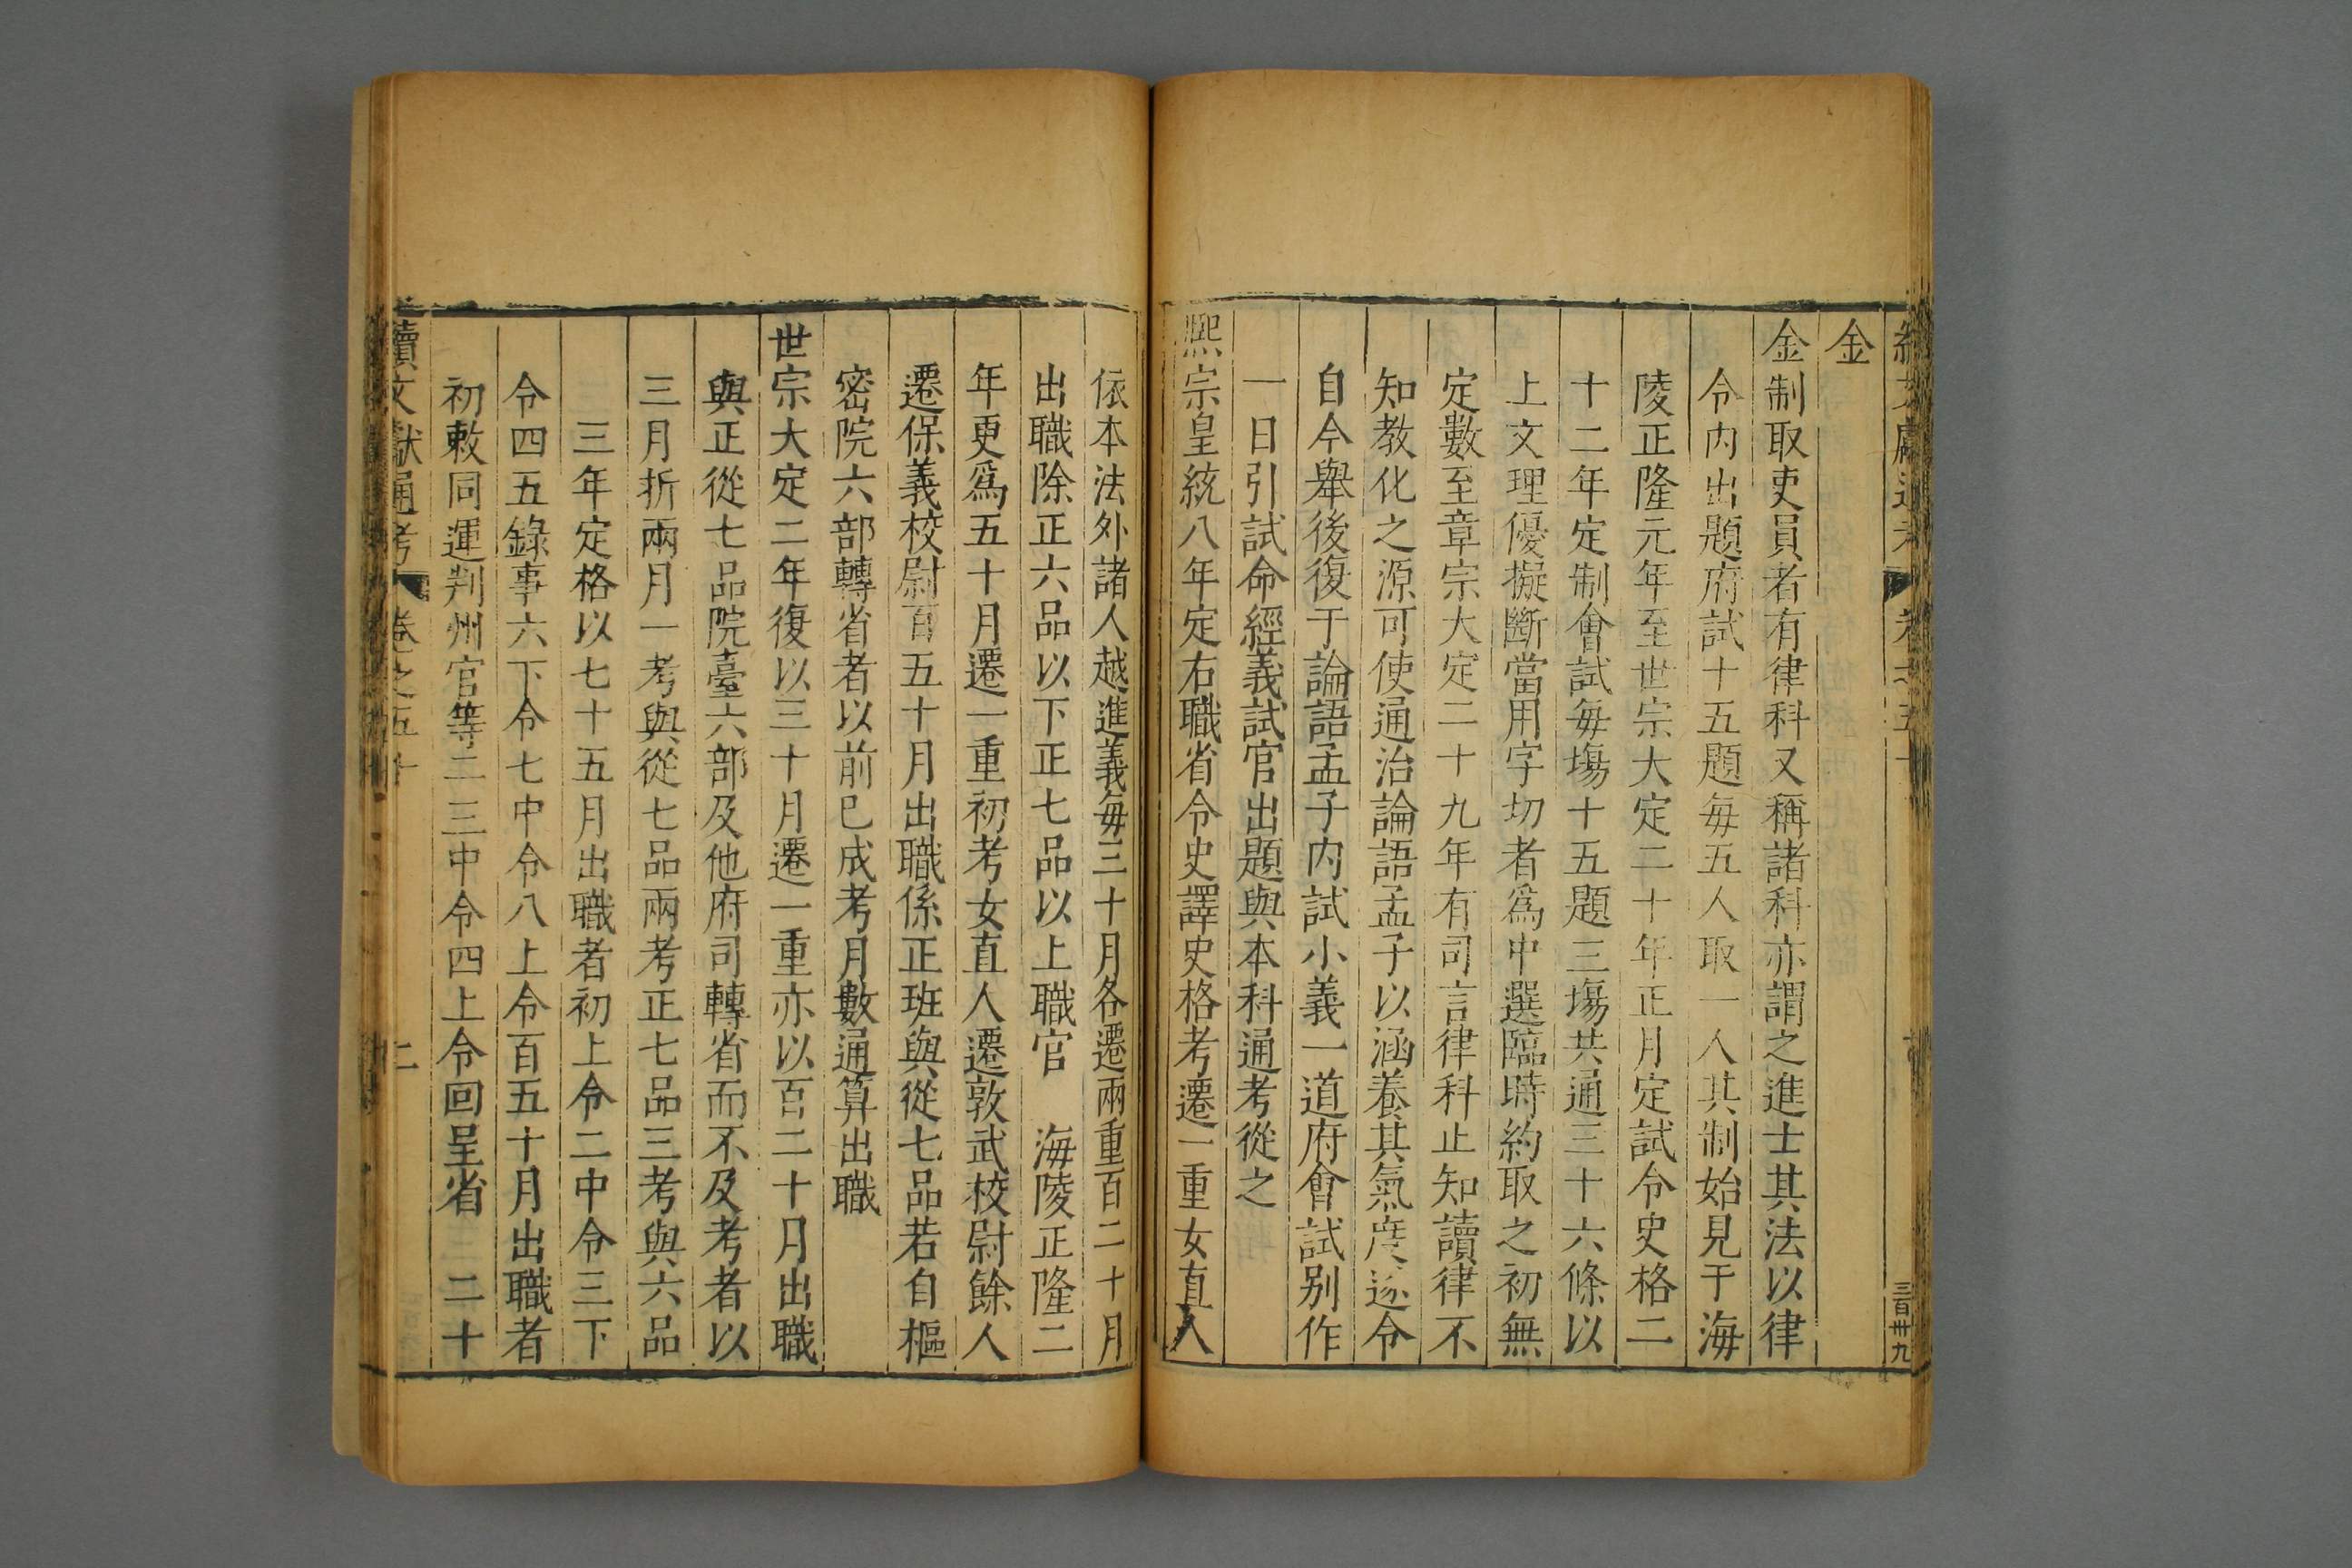 續文獻通考 卷之五十
三百卅九
金
金制取吏員者有律科又稱諸科亦謂之進士其法以律
令內出題府試十五題每五人取一人其制始見于海
陵正隆元年至世宗大定二十年正月定試令史格二
十二年定制會試每場十五題三場共通三十六條以
上文理優擬斷當用字切者爲中選臨時約取之初無
定數至章宗大定二十九年有司言律科止知讀律不
知教化之源可使通治論語孟子以涵養其氣度遂令
自今舉後復于論語孟子內試小義一道府會試別作
一日引試命經義試官出題與本科通考從之
熙宗皇統八年定右職省令史譯史格考遷一重女直人
依本法外諸人越進義每三十月各遷兩重百二十月
出職除正六品以下正七品以上職官 海陵正隆二
年更爲五十月遷一重初考女直人遷敦武校尉餘人
遷保義校尉百五十月出職係正班與從七品若自樞
密院六部轉省者以前已成考月數通算出職
世宗大定二年復以三十月遷一重亦以百二十月出職
與正從七品院臺六部及他府司轉省而不及考者以
三月折兩月一考與從七品兩考正七品三考與六品
三年定格以七十五月出職者初上令二中令三下
令四五錄事六下令七中令八上令百五十月出職者
初敕同運判州官等二三中令四上令回呈省 二十
續文獻通考 卷之五十 二